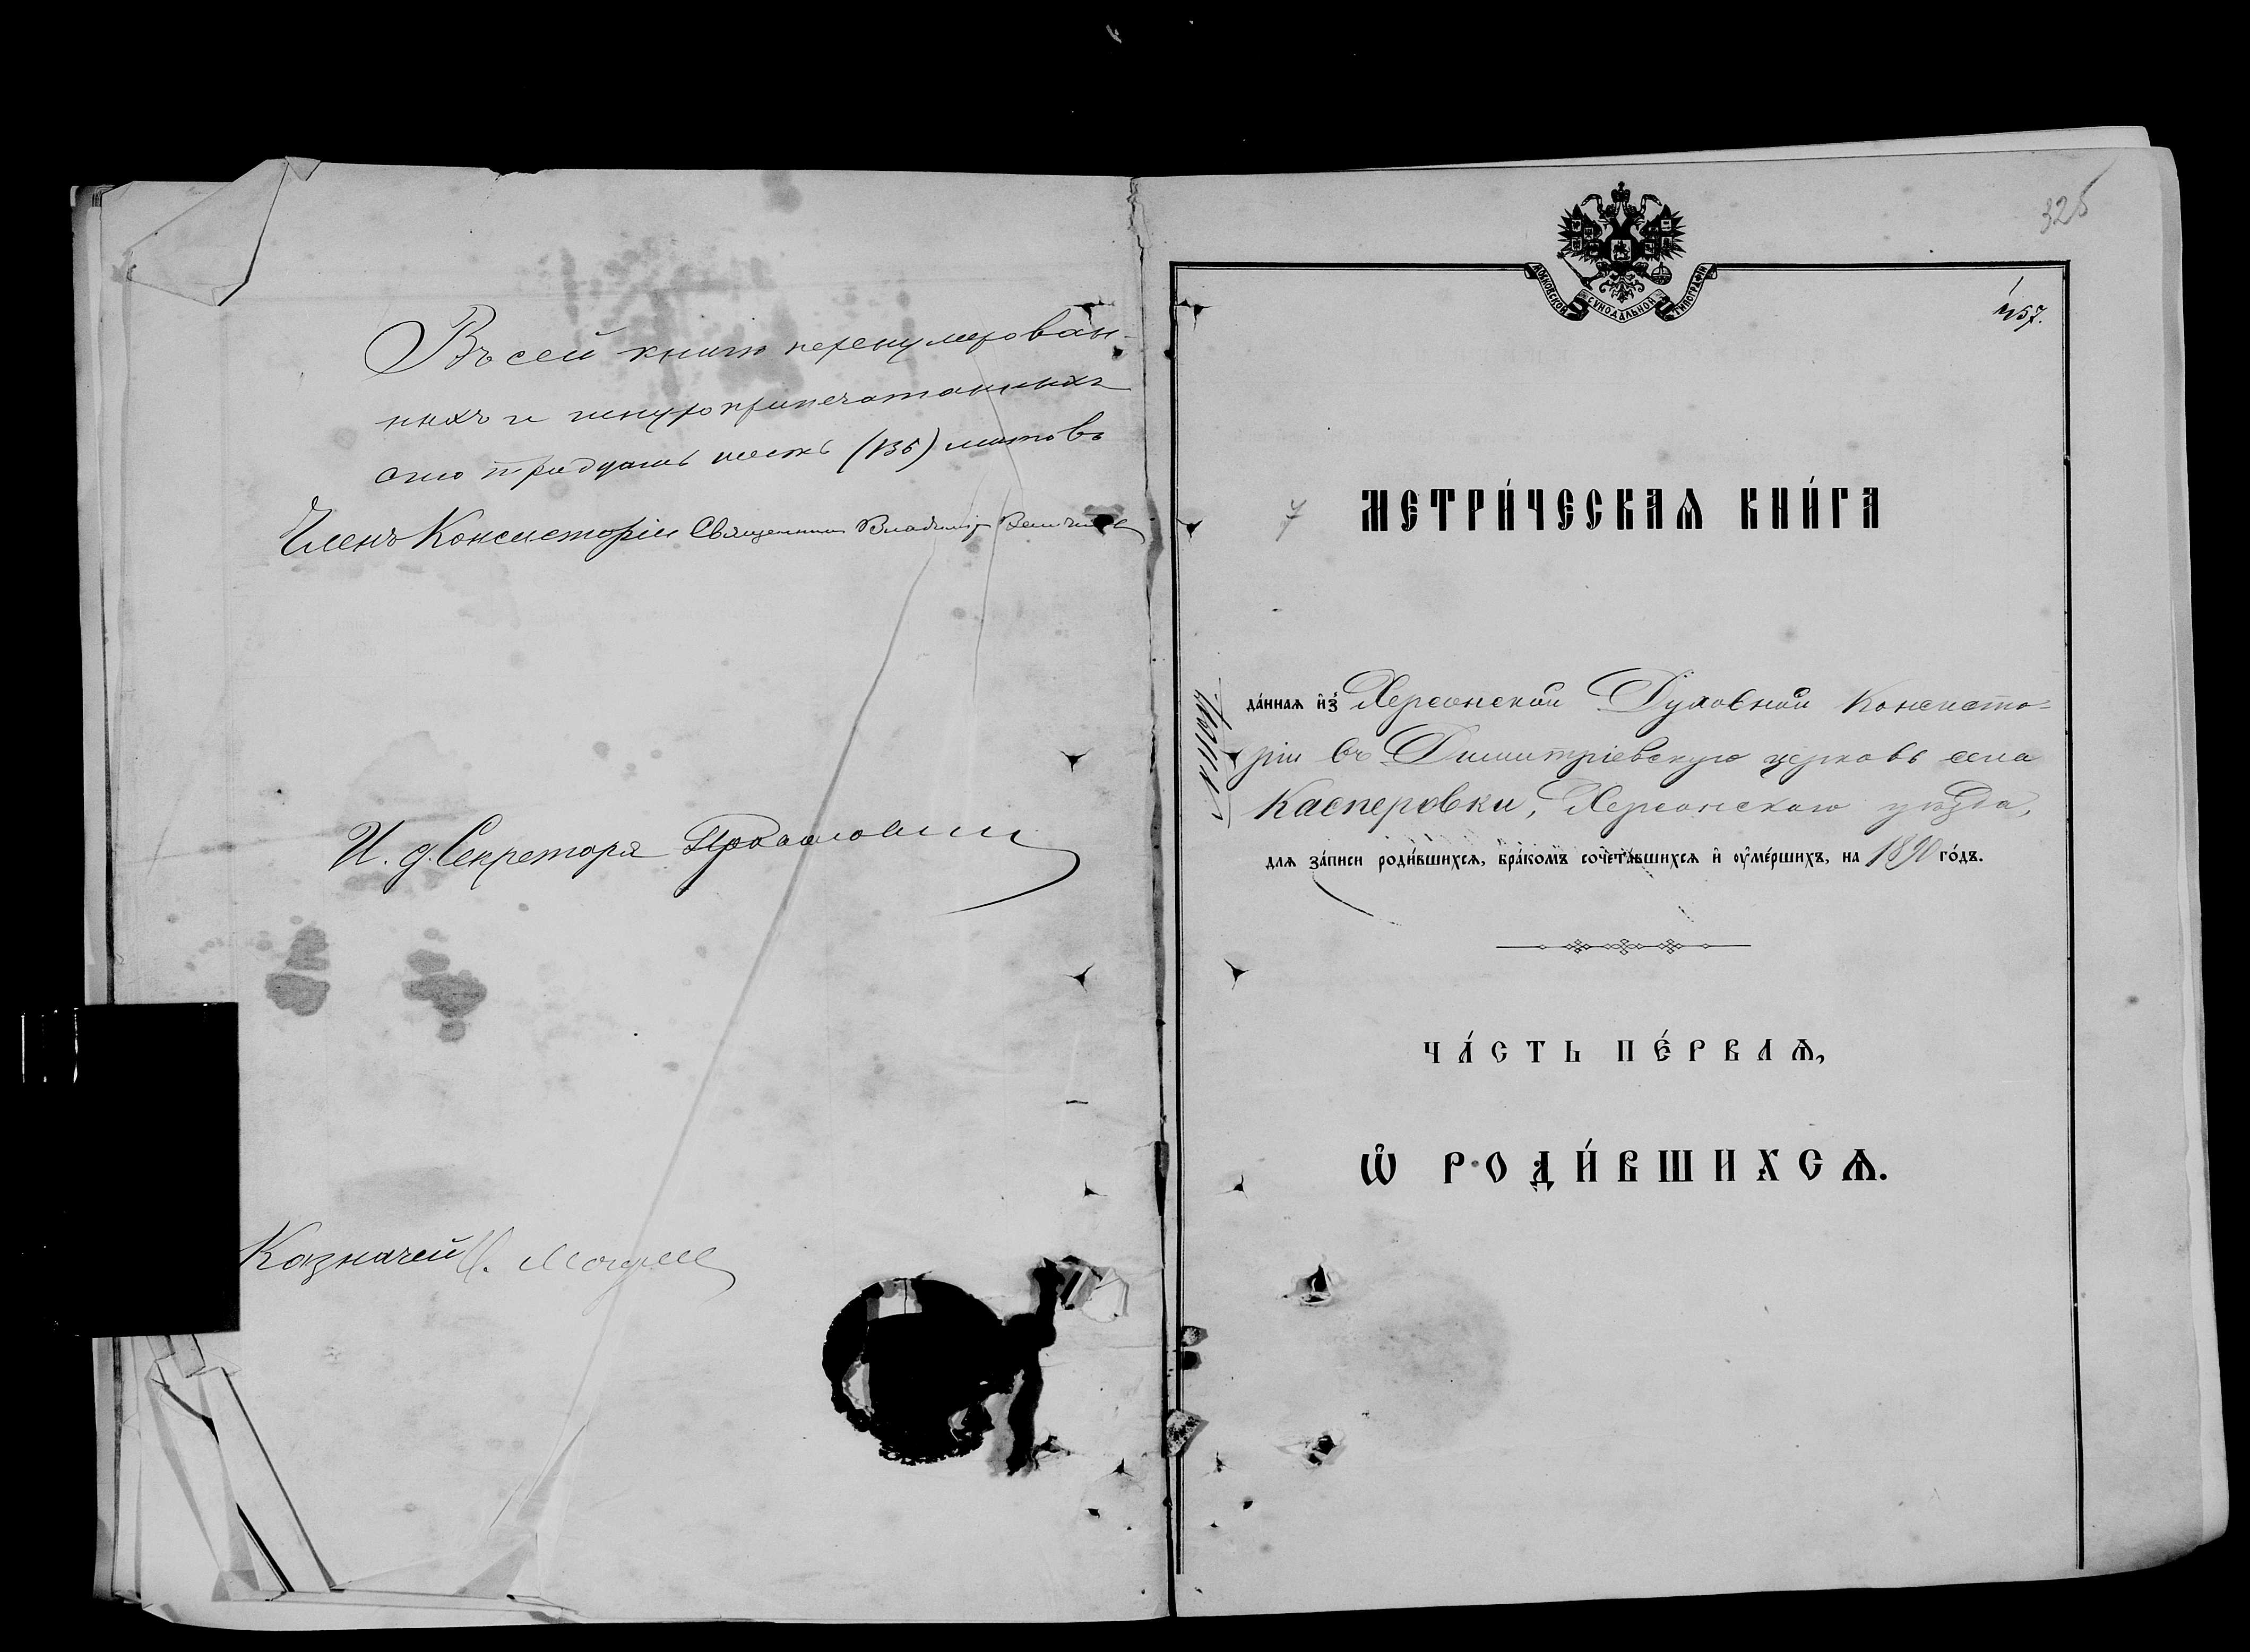 Въ сей книгѣ перенумерован-
ныхъ и шнуроприпечатанныхъ
сто тридцать шесть (136) листовъ
Членъ Консисторіи Священникъ Владиміръ
И. д. Секретаря
Казначей
325
МОСКОВСКОЙ СѴНОДАЛЬНОЙ ТИПОГРАФІИ
№57.
МЕТРИ́ЧЕСКАѦ КНИ́ГА
да́ннаѧ и҆з̾ Херсонской Духовной Консисто=
ріи въ Димитріевскую церковь села
Касперовки, Херсонскаго уѣзда,
длѧ за́писи роди́вшихсѧ, бра́комъ сочета́вшихсѧ и҆ ѹ҆ме́ршихъ, на 1890 го́дъ.
ЧА́СТЬ ПЕ́РВАѦ,
Ѽ РОДИ́ВШИХСѦ.